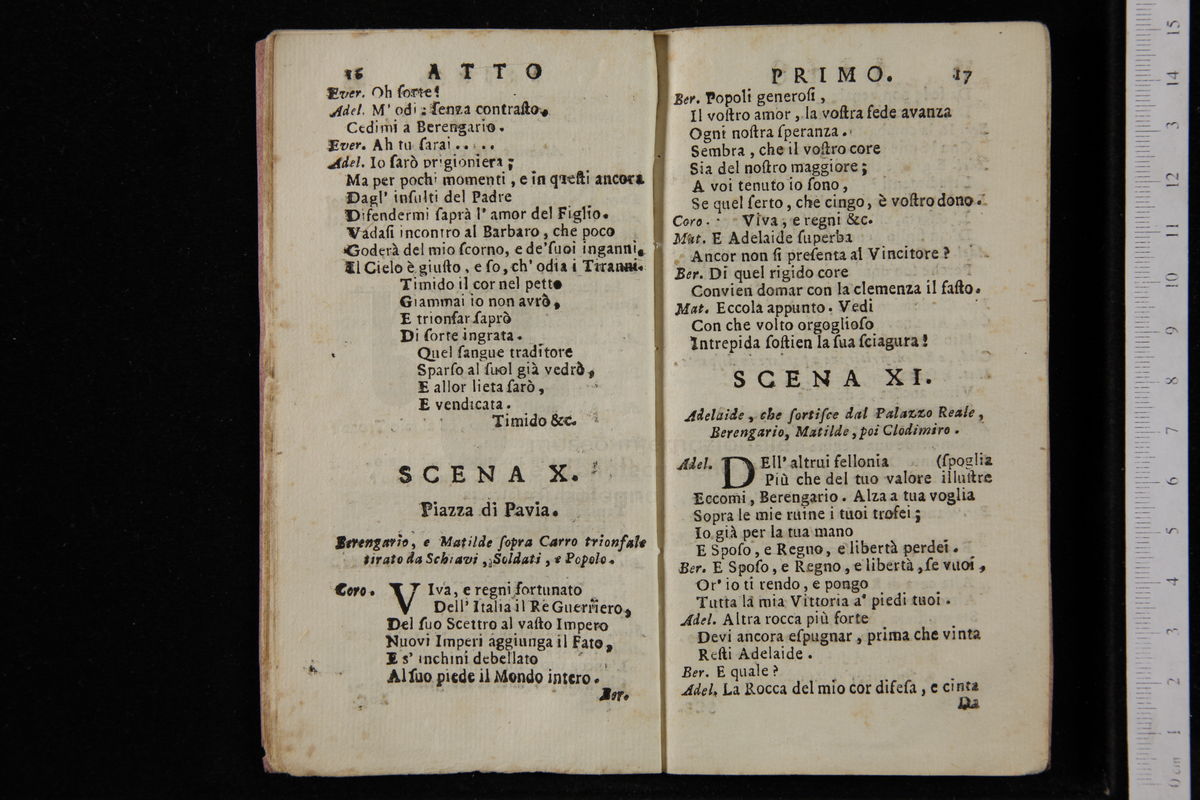 16 ATTO
Ever. Oh ſorte!
Adel. M' odi: ſenza contraſto,
Cedimi a Berengario.
Ever. Ah tu ſarai.....
Adel. Io ſarò prigioniera;
Ma per pochi momenti, e in queſti ancora
Dagl' inſulti del Padre
Difendermi ſaprà l' amor del Figlio.
Vadaſi incontro al Barbaro, che poco
Goderà del mio ſcorno, e de' ſuoi inganni.
Il Cielo è giuſto, e ſo, ch' odia i Tiranni.
Timido il cor nel petto
Giammai io non avrò,
E trionfar ſaprò
Di ſorte ingrata.
Quel ſangue traditore
Sparſo al ſuol già vedrò,
E allor lieta ſarò,
E vendicata.
Timido &c.
SCENA X.
Piazza di Pavia.
Berengario, e Matilde ſopra Carro trionfale
tirato da Schiavi, Soldati, e Popolo.
Coro. VIva, e regni fortunato
Dell' Italia il Re Guerriero,
Del ſuo Scettro al vaſto Impero
Nuovi Imperi aggiunga il Fato,
E s' inchini debellato
Al ſuo piede il Mondo intero.
Ber.
PRIMO. 17
Ber. Popoli generoſi,
Il voſtro amor, la voſtra fede avanza
Ogni noſtra ſperanza.
Sembra, che il voſtro core
Sia del noſtro maggiore;
A voi tenuto io ſono,
Se quel ſerto, che cingo, è voſtro dono.
Coro. Viva, e regni &c.
Mat. E Adelaide ſuperba
Ancor non ſi preſenta al Vincitore?
Ber. Di quel rigido core
Convien domar con la clemenza il faſto.
Mat. Eccola appunto. Vedi
Con che volto orgoglioſo
Intrepida ſoſtien la ſua ſciagura!
SCENA XI.
Adelaide, che ſortiſce dal Palazzo Reale,
Berengario, Matilde, poi Clodimiro.
Adel. DEll' altrui fellonia (ſpoglia
Più che del tuo valore illuſtre
Eccomi, Berengario. Alza a tua voglia
Sopra le mie ruine i tuoi trofei;
Io già per la tua mano
E Spoſo, e Regno, e libertà perdei.
Ber. E Spoſo, e Regno, e libertà, ſe vuoi,
Or' io ti rendo, e pongo
Tutta la mia Vittoria a' piedi tuoi.
Adel. Altra rocca più forte
Devi ancora eſpugnar, prima che vinta
Reſti Adelaide.
Ber. E quale?
Adel. La Rocca del mio cor difeſa, e cinta
Da
15
14
13
12
11
10
9
8
7
6
5
4
3
2
1
0 cm